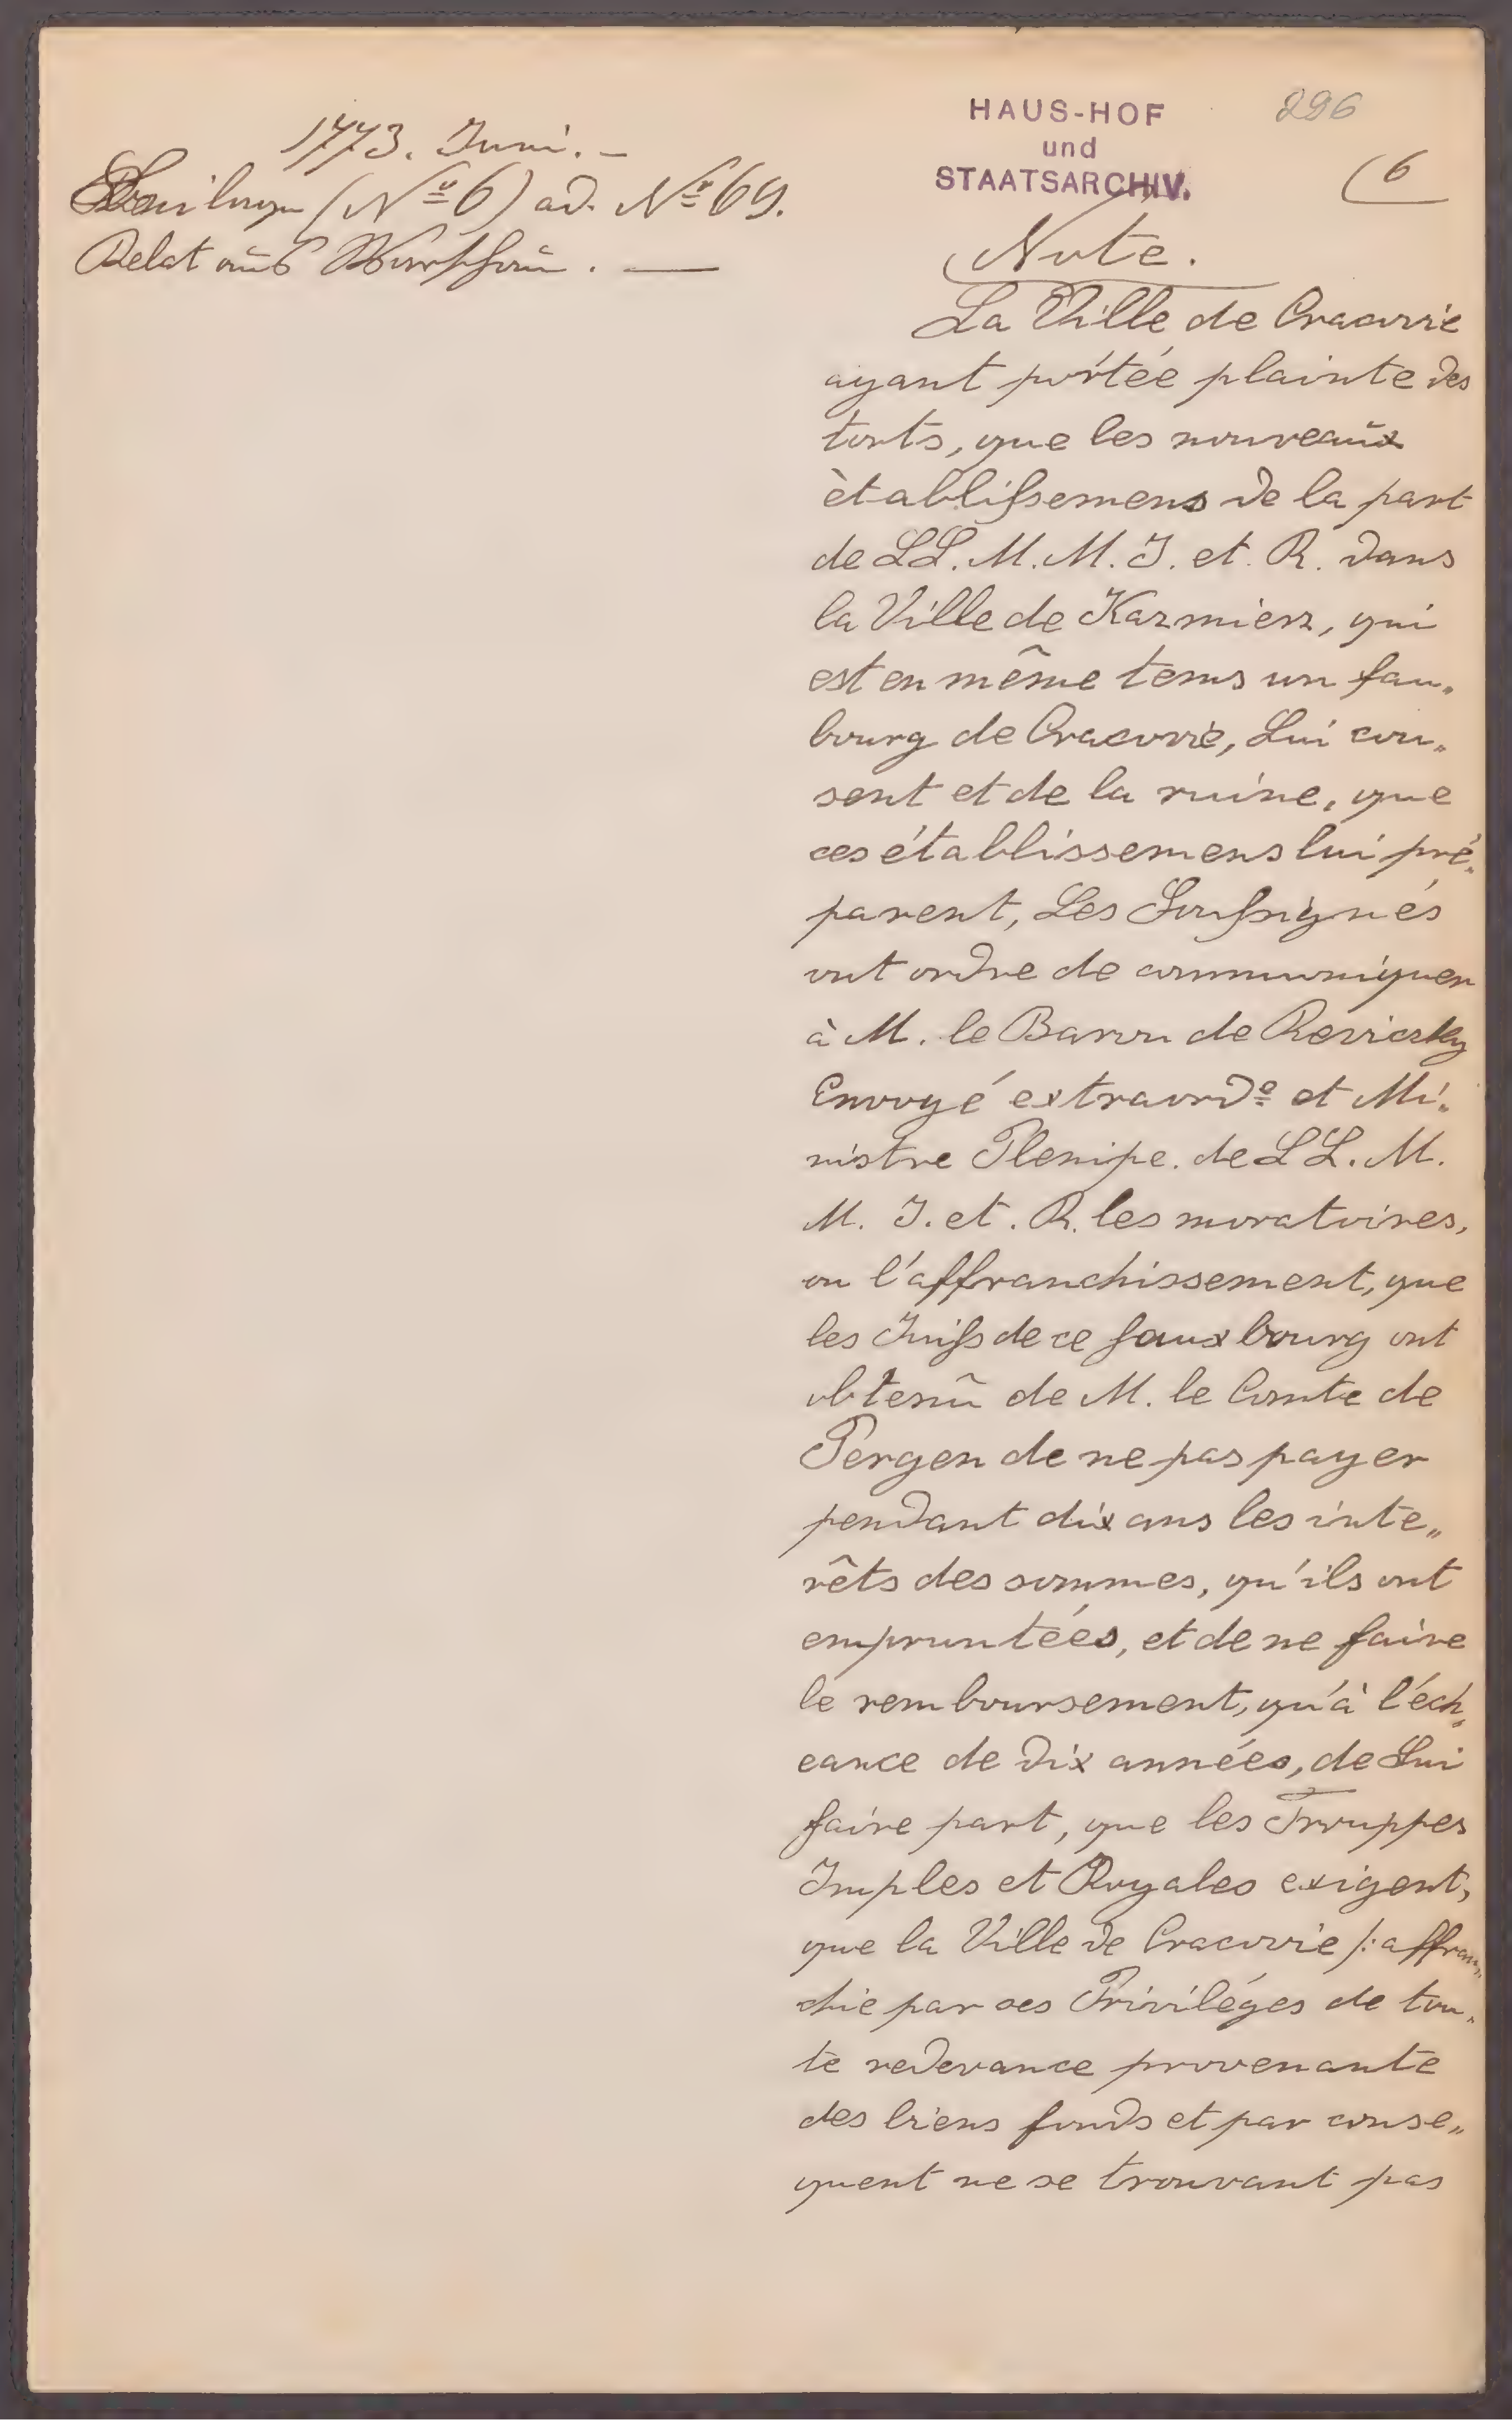 1773. Juni. -
Beilage (No 6) ad. No 69.
Relat aus Warschau. —
HAUS-HOF
und
STAATSARCHIV.
296
6
Note.
La Ville de Cracovie
ayant portée plainte des
torts, que les nouveaux
ètablissemens de la part
de LL. M. M. I. et. R. dans
la Ville de Kazmierz, qui
est en même tems un fau„
bourg de Cracovie, Lui cau„
sent et de la ruine, que
ces établissemens lui pré„
parent, Les Soussignés
ont ordre de communiquer
à M. le Baron de Reviczky
Envoyé extraord.e et Mi„
nistre Plenipe. de LL. M.
M. I. et. R. les moratoires,
ou l'affranchissement, que
les Juifs de ce fauxbourg ont
obtenû de M. le Comte de
Pergen de ne pas payer
pendant dix ans les inte„
rêts des sommes, qu'ils ont
empruntées, et de ne faire
le remboursement, qu'à l'éch„
eance de dix années, de Lui
faire part, que les Trouppes
Imples et Royales exigent,
que la Ville de Cracovie /: affran„
chie par ses Priviléges de tou„
te redevance provenante
des biens fonds et par conse„
quent ne se trouvant pas